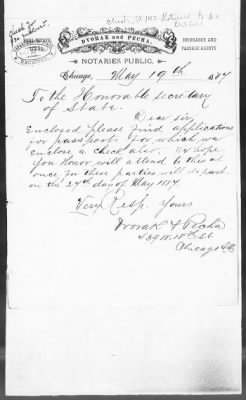 Check N 142 Returned to be
DVORAK and PECHA,
REAL ESTATE
LOANS
INSURANCE AND
PASSAGE AGENTS
NOTARIES PUBLIC.
Chicago, May 19th 1887
To the Honorable Secretary
of State.
Dear sir,
Enclosed please find applications
for passports for which we
enclose a check also. We hope
you Honor will attend to this at
once, for these parties will depart
on the 27th day of May 1887.
Very Resp. Yours
Dvorak & Pecha
W. 18th St
Chicago Ills